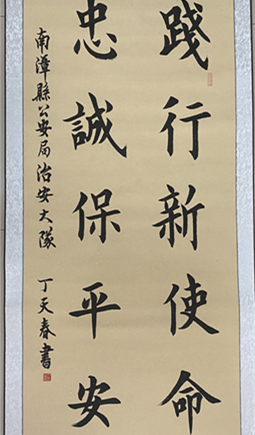 踐行新使命
忠誠保平安
南漳縣公安局治安大隊
丁天春書